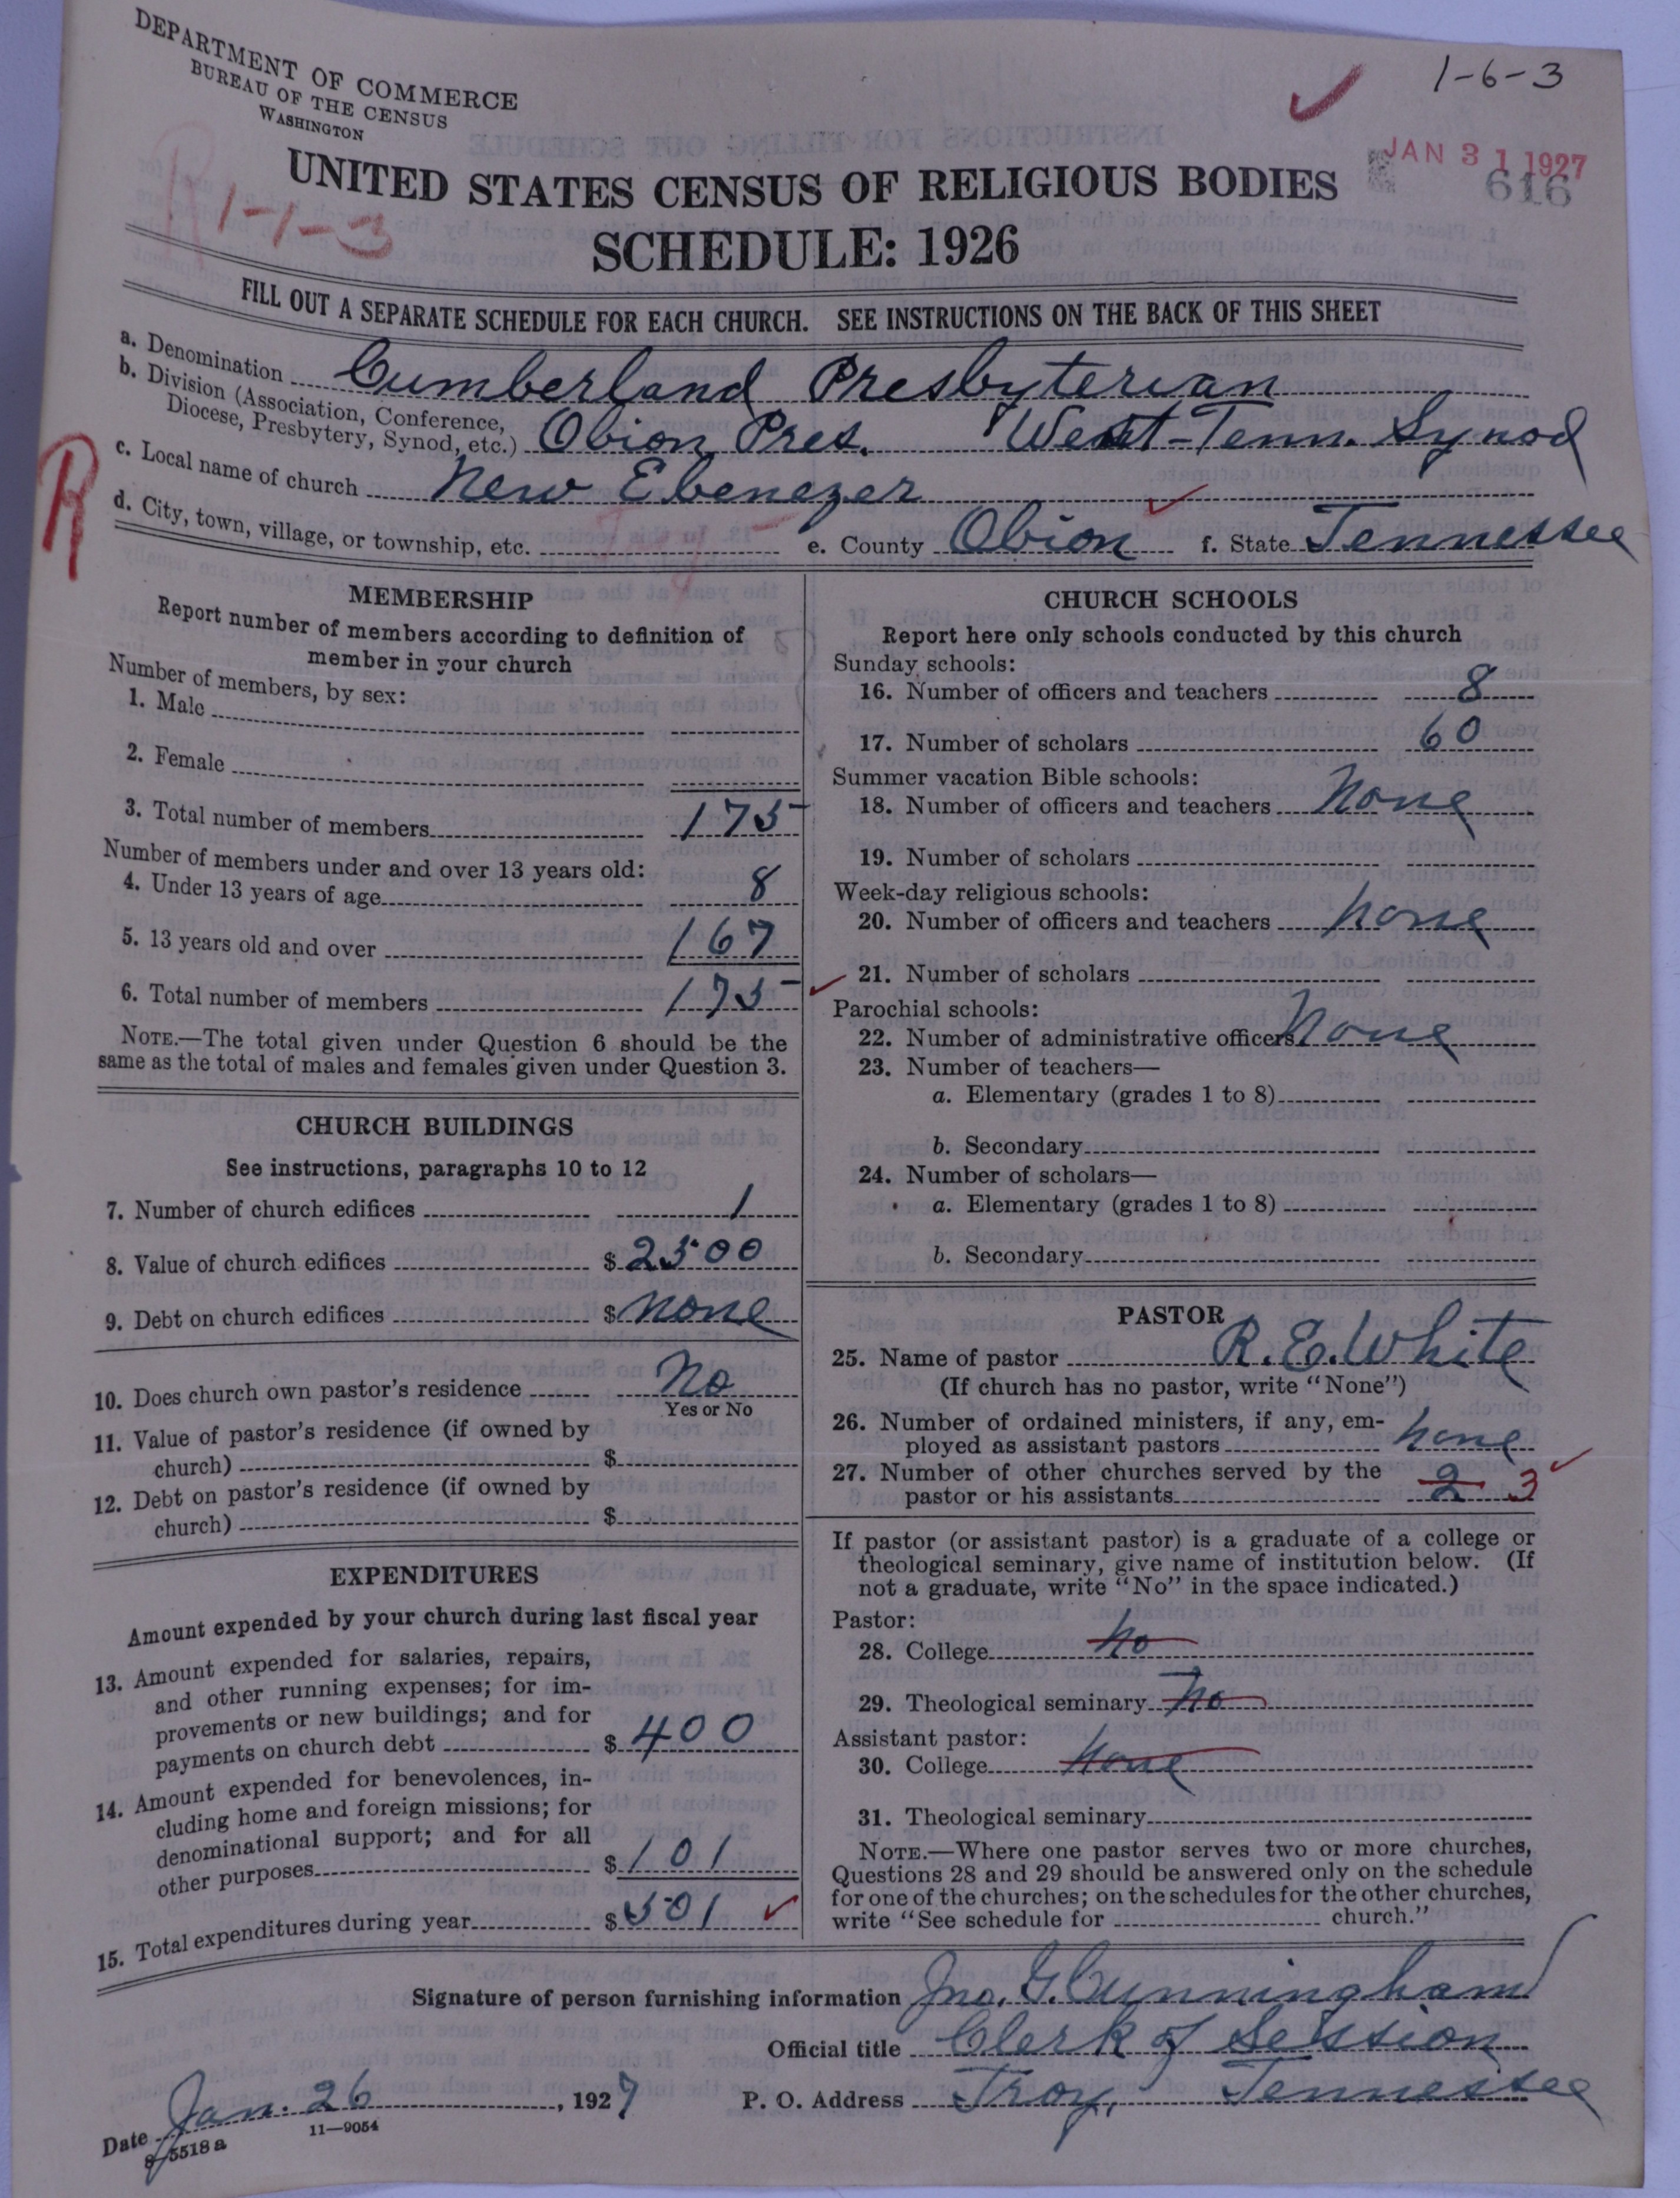 DEPARTMENT OF COMMERCE
BUREAU OF THE CENSUS
WASHINGTON
1-6-3
JAN 31 1927
616
R 1-1-3
UNITED STATES CENSUS OF RELIGIOUS BODIES
SCHEDULE: 1926
FILL OUT A SEPARATE SCHEDULE FOR EACH CHURCH. SEE INSTRUCTIONS ON THE BACK OF THIS SHEET
a. Denomination Cumberland Presbyterian
b. Division (Association, Conference,
Diocese, Presbytery, Synod, etc.) Obion Pres. West-Tenn. Synod
R
c. Local name of church New Ebenezer
d. City, town, village, or township, etc. e. County Obion f. State Tennessee
MEMBERSHIP
Report number of members according to definition of
member in your church
Number of members, by sex:
1. Male
2. Female
3. Total number of members 175
Number of members under and over 13 years old:
4. Under 13 years of age 8
5. 13 years old and over 167
6. Total number of members 175
NOTE.—The total given under Question 6 should be the
same as the total of males and females given under Question 3.
CHURCH BUILDINGS
See instructions, paragraphs 10 to 12
7. Number of church edifices 1
8. Value of church edifices $ 2500
9. Debt on church edifices $ none
10. Does church own pastor's residence No
Yes or No
11. Value of pastor's residence (if owned by
church) $
12. Debt on pastor's residence (if owned by
church) $
EXPENDITURES
Amount expended by your church during last fiscal year
13. Amount expended for salaries, repairs,
and other running expenses; for im-
provements or new buildings; and for
payments on church debt $ 400
14. Amount expended for benevolences, in-
cluding home and foreign missions; for
denominational support; and for all
other purposes $ 101
15. Total expenditures during year $ 501
CHURCH SCHOOLS
Report here only schools conducted by this church
Sunday schools:
16. Number of officers and teachers 8
17. Number of scholars 60
Summer vacation Bible schools:
18. Number of officers and teachers None
19. Number of scholars
Week-day religious schools:
20. Number of officers and teachers none
21. Number of scholars
Parochial schools:
22. Number of administrative officers None
23. Number of teachers—
a. Elementary (grades 1 to 8)
b. Secondary
24. Number of scholars—
a. Elementary (grades 1 to 8)
b. Secondary
PASTOR
25. Name of pastor R. E. White
(If church has no pastor, write "None")
26. Number of ordained ministers, if any, em-
ployed as assistant pastors none
27. Number of other churches served by the
pastor or his assistants 2 3
If pastor (or assistant pastor) is a graduate of a college or
theological seminary, give name of institution below. (If
not a graduate, write "No" in the space indicated.)
Pastor:
28. College no
29. Theological seminary no
Assistant pastor:
30. College none
31. Theological seminary
NOTE.—Where one pastor serves two or more churches,
Questions 28 and 29 should be answered only on the schedule
for one of the churches; on the schedules for the other churches,
write "See schedule for church."
Signature of person furnishing information Jno. G. Cunningham
Official title Clerk of Session
Date Jan. 26, 1927 P. O. Address Troy, Tennessee
8-5518a 11-9054